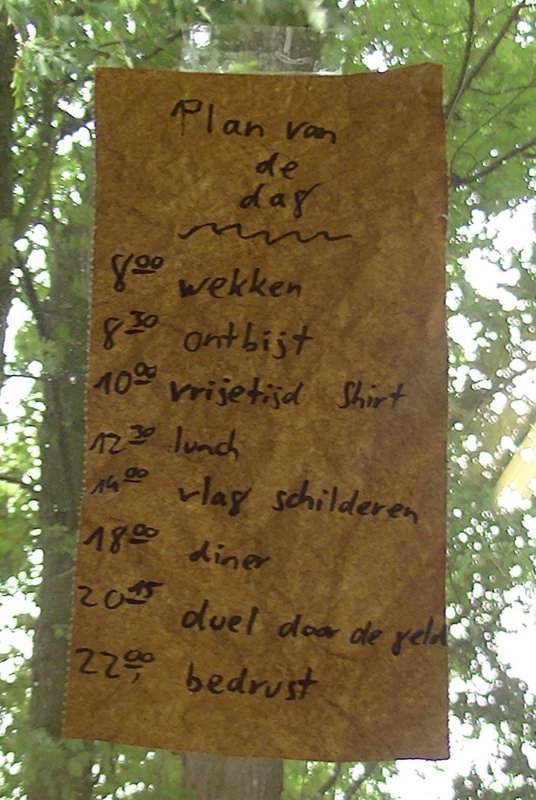 Plan van
de
dag
8 00 wekken
8 30 ontbijt
10 00 vrijetijd Shirt
12 30 lunch
14 00 vlag schilderen
18 00 diner
20 15 duel door de geld
22 00 bedrust